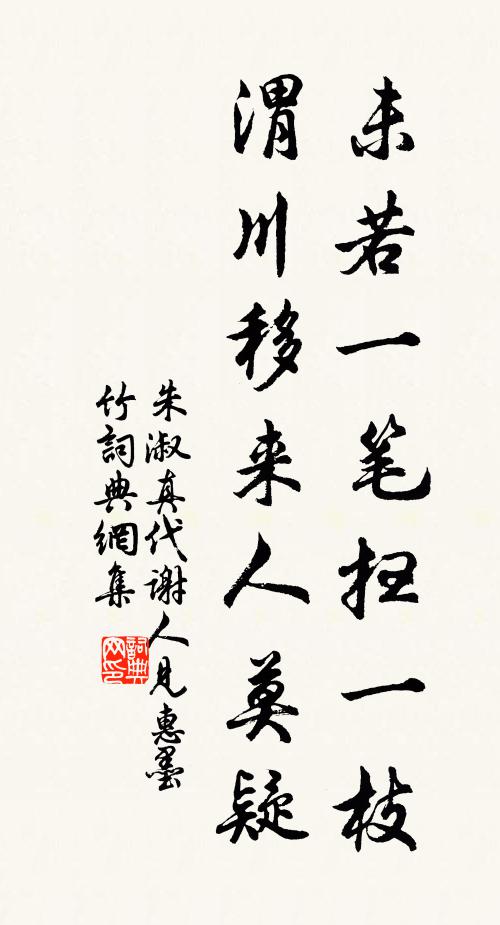 未若一笔扫一枝
渭川移来人莫疑
朱淑真代谢人見惠墨
竹詞典網集
詞典
网印